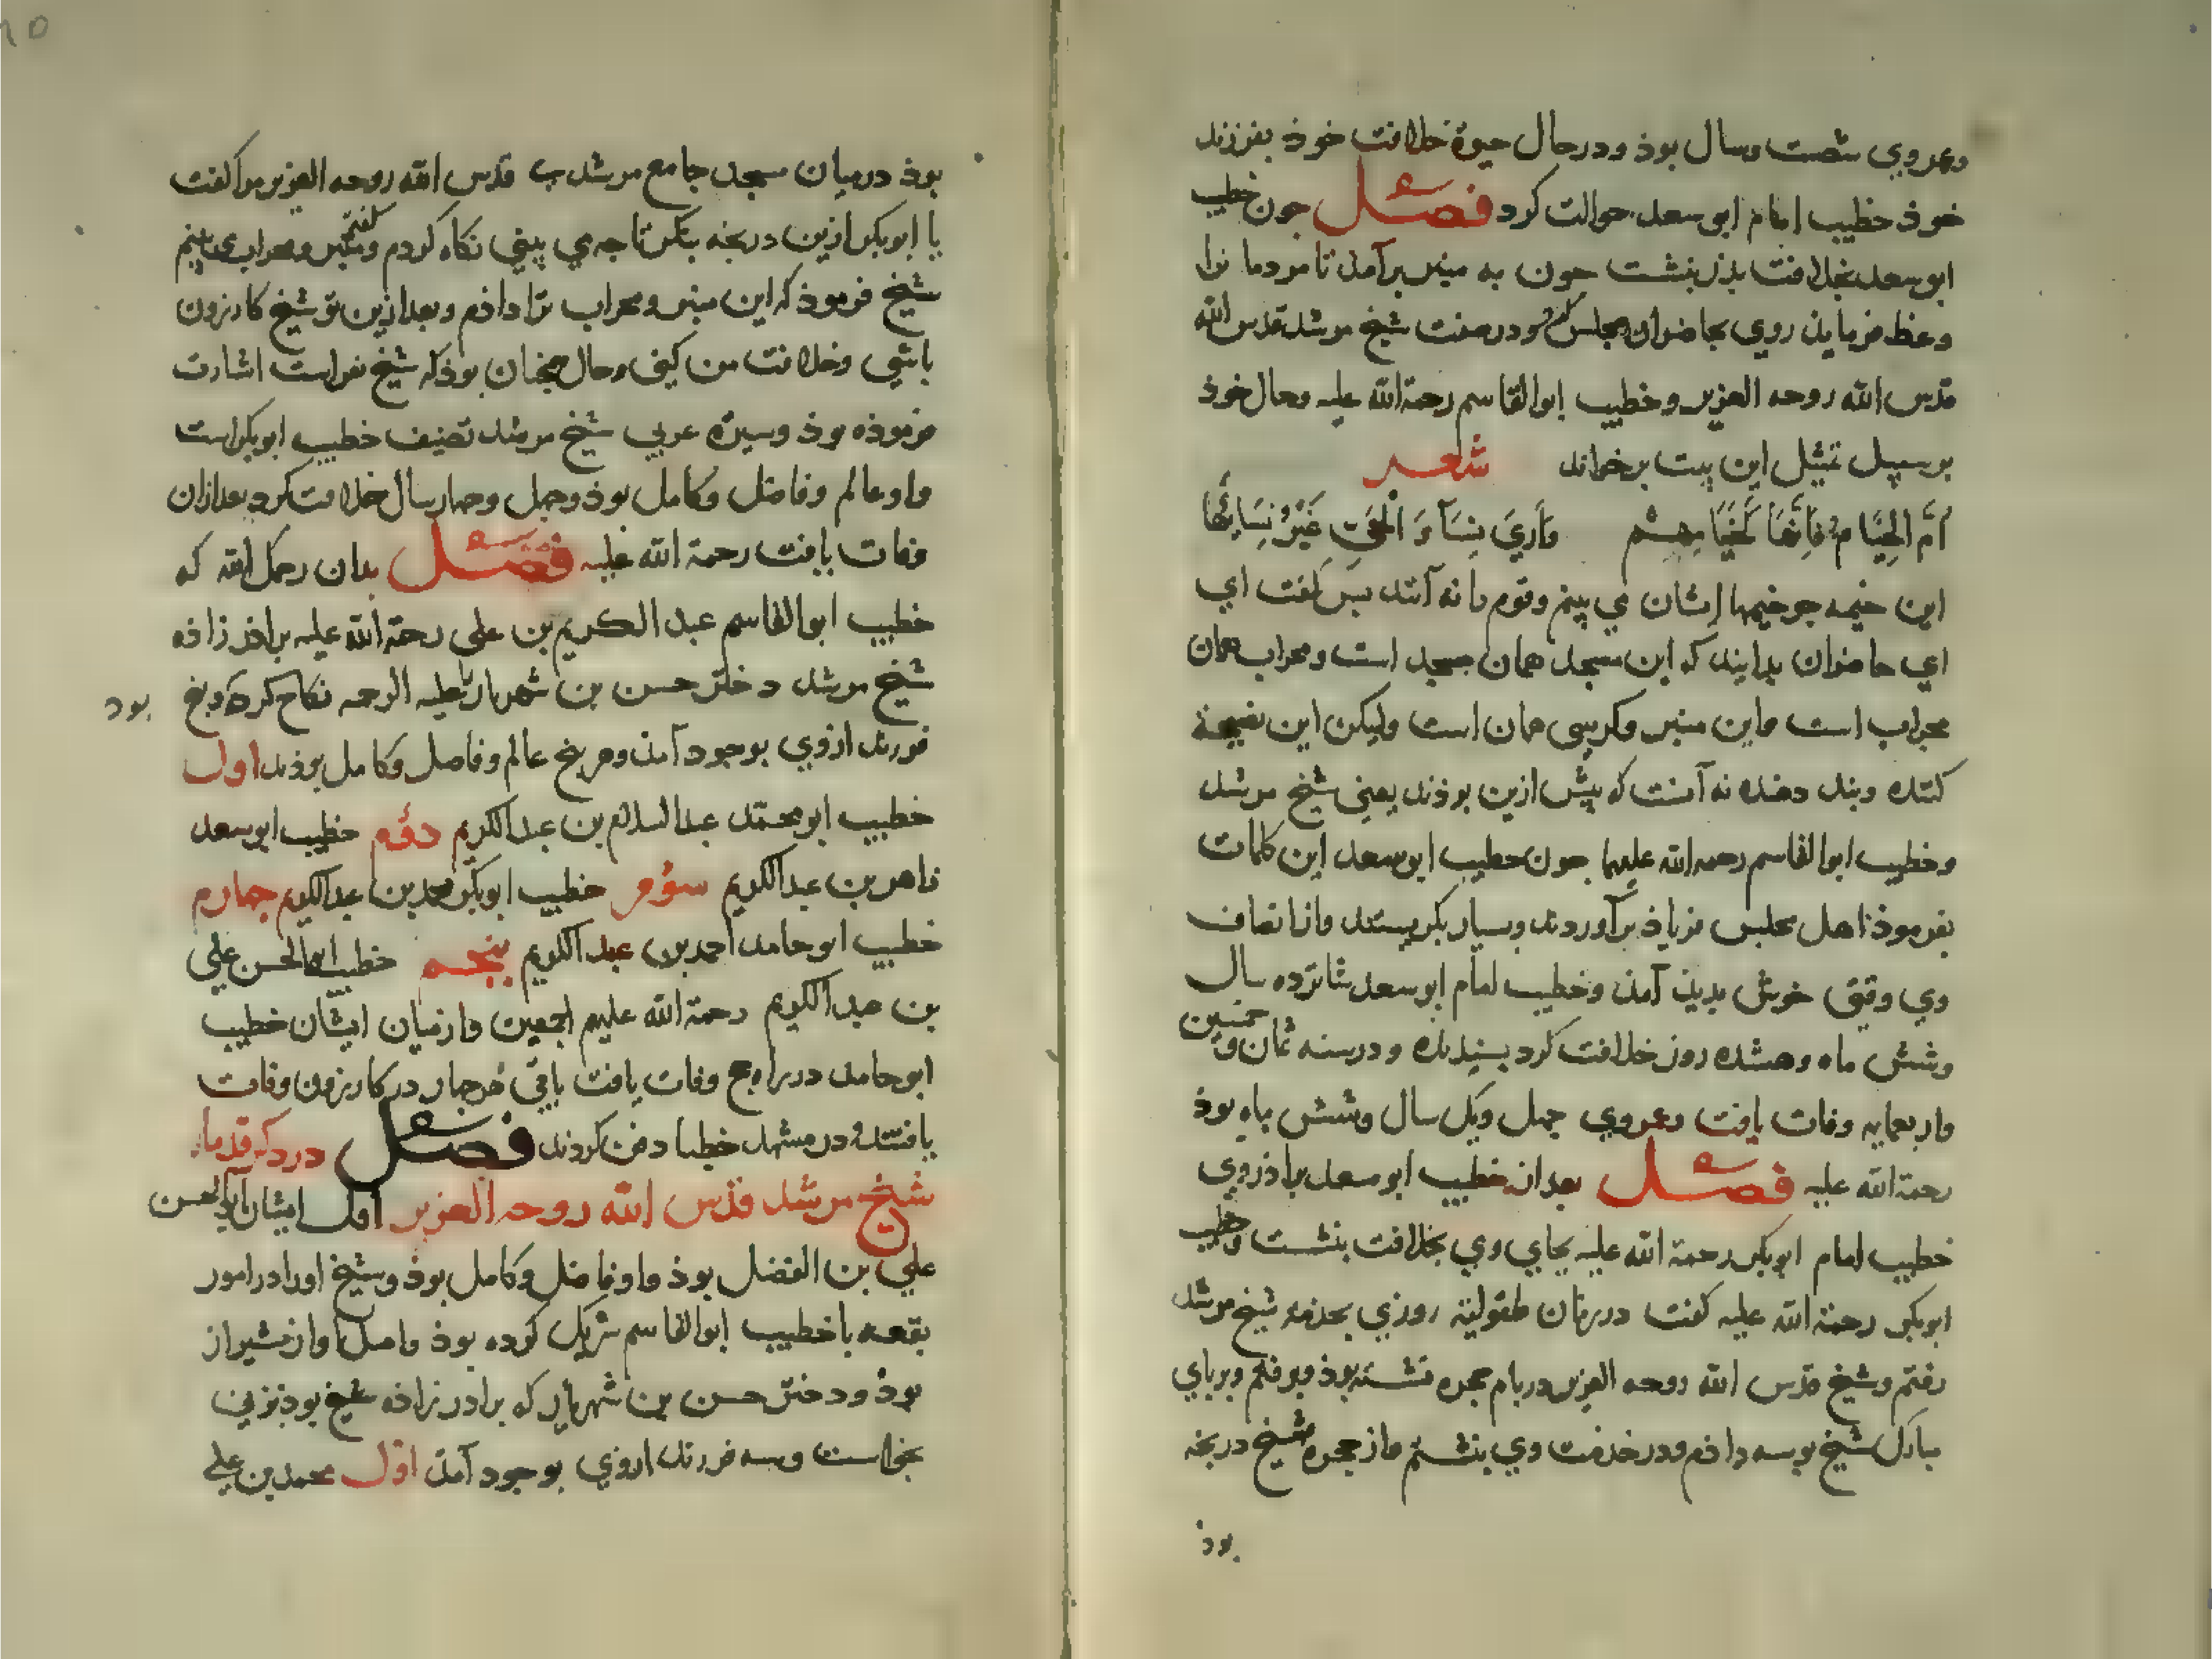 وعمر وی شصت وسال بوذ ودرحال حیوة خلافت خوذ بفرزند
خوذ خطیب امام ابی سعد حوالت کرد فصل جون خطیب
ابوسعد بخلافت بذر بنشست جون به منبر برآمذ تا مردمانرا
وعظ فرمایذ روی بحاضران مجلس کرد ودرصفت شیخ مرشد قدس الله
قدس الله روحه العزیز وخطیب ابوالقاسم رحمة الله علیه وحال خوذ
برسبیل تمثیل این بیت برخواند شعر
أمّ الخِیَامُ فَإِنَّهَا كَخِیَامِهِمْ وَأَرَى نِسَآءَ الْحَيِّ غَيْرُ نِسَائِهَا
این خیمه جو خیمها ایشان می بینم وقوم ما نه آنند بس کفت ای
ای حاضران بدانید که این مسجد همان مسجد است ومحراب همان
محراب است واین منبر وکرسی همان است ولیکن این نصیحة
کننده وبند دهنده نه آنست که پیش ازین بوذند یعنی شیخ مرشد
وخطیب ابوالقاسم رحمه الله علیهما جون خطیب ابوسعد این کلمات
بفرموذ اهل مجلس فریاذ برآوردند وبسیار بکریستند وازانصاف
وی وقتی خوش بدیذ آمذ وخطیب امام ابوسعد شانزده سال
وشش ماه وهشده روز خلافت کرد بسندیده ودرسنه ثمان وخمسین
واربعمایه وفات یافت وعمر وی جهل ویک سال وشش ماه بوذ
رحمة الله علیه فصل بعدازخطیب ابوسعد براذر وی
خطیب امام ابوبکر رحمة الله علیه بجای وی بخلافت بنشست وخطیب
ابوبکر رحمة الله علیه کفت درزمان طفولیة روزی بخدمة شیخ مرشد
رفتم وشیخ قدس الله روحه العزیز دربام حجره نشسته بوذ وبرفتم وبربای
مبارک شیخ بوسه داذم ودرخدمت وی بنشستم واز حجره شیخ دریجه
بوذ
بوذ درمیان مسجد جامع مرشدی قدس الله روحه العزیز مرا کفت
یا ابوبکر ازین دریجه بنکر تا جه می بینی نکاه کردم وکفتم منبر ومحراب می بینم
شیخ فرموذ که این منبر ومحراب ترا داذم وبعدازین تو شیخ کازرون
باشی وخلافت من کنی وحال همجنان بوذ که شیخ بفراست اشارت
فرموذه بوذ وسیرة عربی شیخ مرشد تصنیف خطیب ابوبکر است
واو عالم وفاضل وکامل بوذ وجهل وجهار سال خلافت کرد بعدازان
وفات یافت رحمة الله علیه فصل بدان رحمک الله که
خطیب ابوالقاسم عبد الکریم بن علی رحمة الله علیه براذر زاذه
شیخ مرشد دختر حسن بن شهریار علیه الرحمه نکاح کرده وپنج بود
فرزند ازوی بوجود آمذ وهر پنج عالم وفاضل وکامل بوذند اول
خطیب ابومحمد عبدالسلام بن عبدالکریم دوم خطیب ابوسعد
طاهر بن عبدالکریم سوم خطیب ابوبکر محمد بن عبدالکریم جهارم
خطیب ابوحامد احمد بن عبدالکریم پنجم خطیب ابوالحسن علی
بن عبدالکریم رحمة الله علیهم اجمعین وازمیان ایشان خطیب
ابوحامد درراه حج وفات یافت باقی هرجهار درکازرون وفات
یافتند ودرمشهد خطبا دفن کردند فصل درذکر قدماء
شیخ مرشد قدس الله روحه العزیز اول ایشان ابوالحسن
علی بن الفضل بوذ واوفاضل وکامل بوذ وشیخ اورا درامور
بقعه باخطیب ابوالقاسم شریک کرده بوذ واصل او از شیراز
بوذ ودختر حسن بن شهریار که برادر زاذه شیخ بوذ بزنی
بخواست وسه فرزند ازوی بوجود آمذ اول محمد بن علی